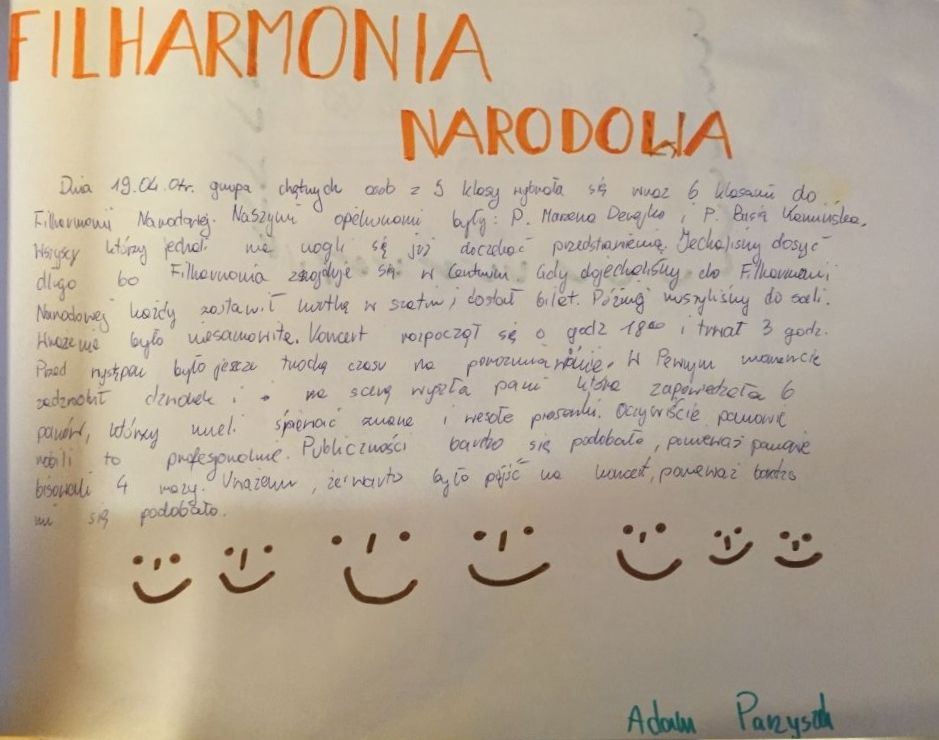 FILHARMONIA
NARODOWA
Dnia 19.04.04r. grupa chętnych osób z 5 klasy wybrała się wraz 6 klasami do
Filharmonii Narodowej. Naszymi opiekunami były: P. Marzena i P. Basia Kamińska.
Wszyscy którzy jechali nie mogli się już doczekać przedstawienia. Jechaliśmy dosyć
długo bo Filharmonia znajduje się w Centrum. Gdy dojechaliśmy do Filharmonii
Narodowej każdy zostawił kurtkę w szatni i dostał bilet. Później ruszyliśmy do sali.
Wrażenie było niesamowite. Koncert rozpoczął się o godz 18 00 i trwał 3 godz.
Przed występem było jeszcze trochę czasu na porozmawianie. W Pewnym momencie
zadzwonił dzwonek i na scenę wyszła pani która zapowiedziała 6
panów, którzy mieli śpiewać znane i wesołe piosenki. Oczywiście panowie
robili to profesjonalnie. Publiczności bardzo się podobało, ponieważ panowie
bisowali 4 razy. Uważam, że warto było pójść na koncert, ponieważ bardzo
mi się podobało.
Adam